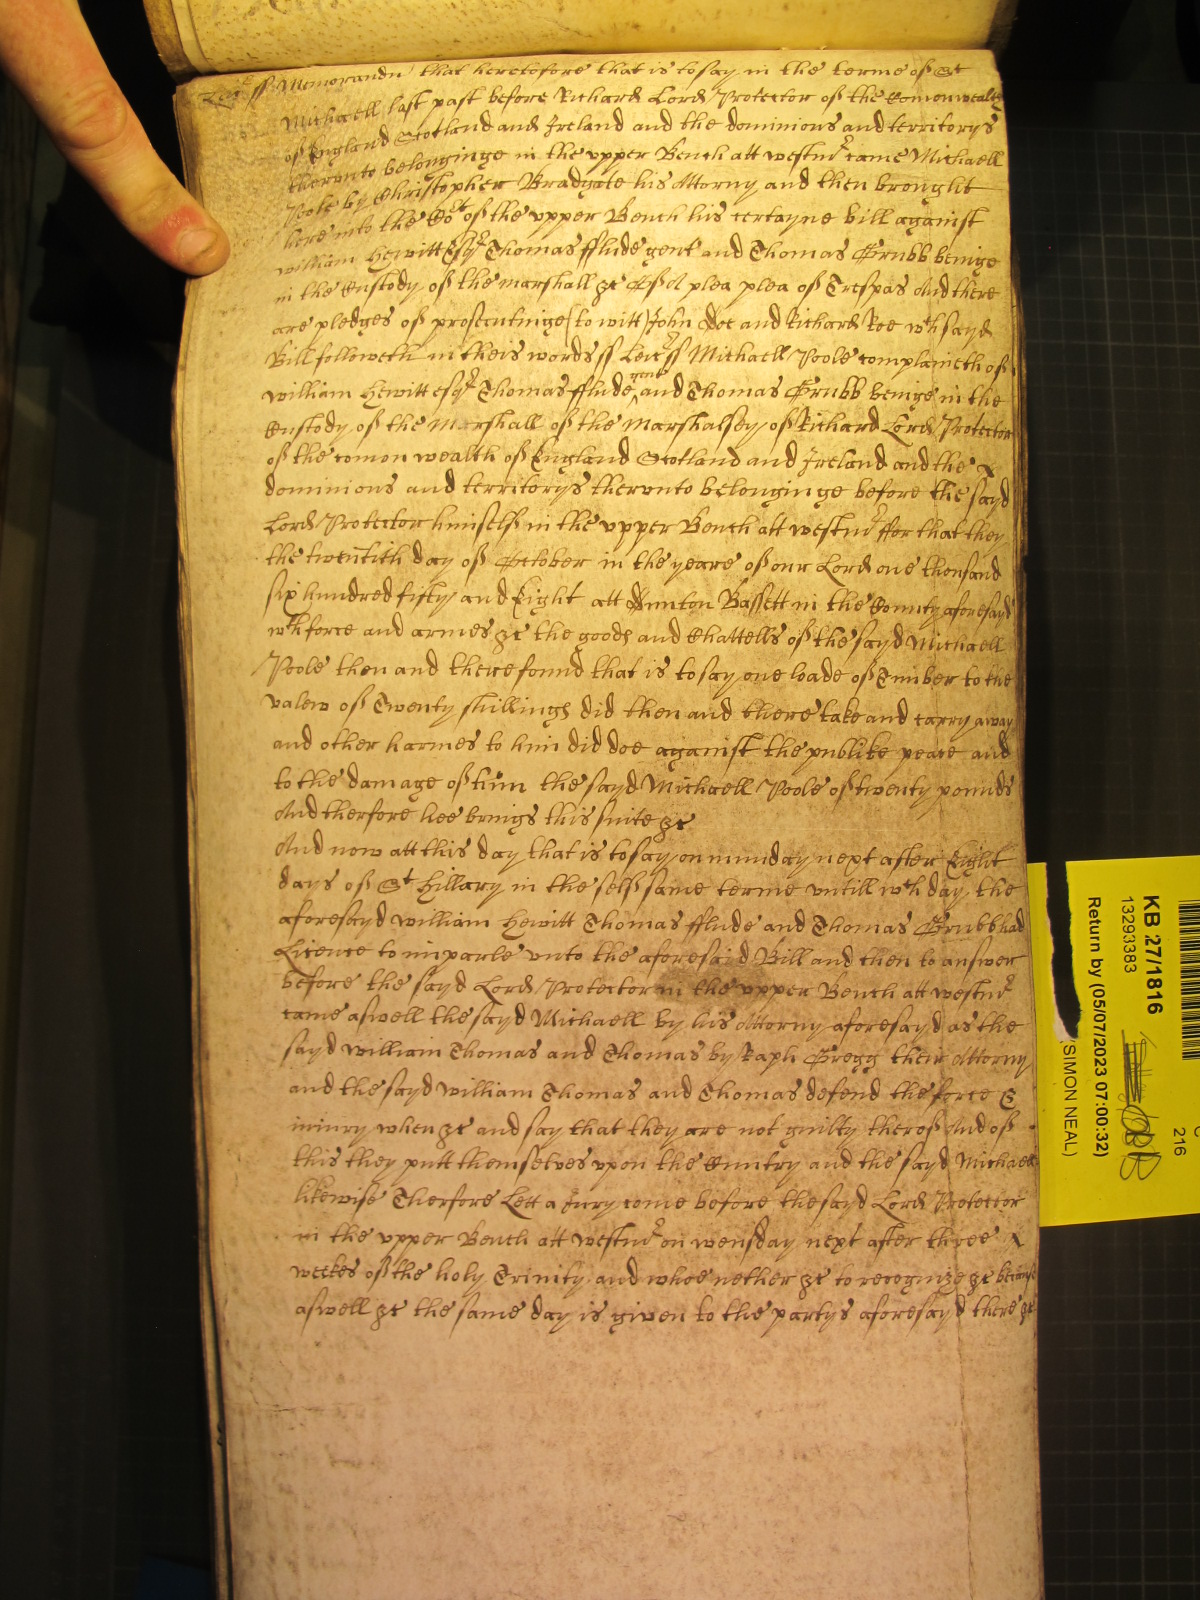 Leic ss Memorandu that heretofore that is to say in the terme of St
Michaell last past before Richard Lord Protector of the Comonwealth
of England Scotland and Ireland and the dominions and territorys
therunto belonginge in the upper Bench att westmr came Michaell
Poole by Christopher Bradgate his Attorny and then brought
here into the Cort of the upper Bench his certayne bill against
william Hewitt Esqr Thomas fflude gent and Thomas Grubb beinge
in the Custody of the marshall &c Of A plea plea of Trespas And there
are pledges of prosecutinge (to witt) John Doe and Richard Roe wch sayd
Bill followeth in theis words ss Leicr ss Michaell Poole complaineth of
william Hewitt esqr Thomas fflude gent and Thomas Grubb beinge in the
Custody of the Marshall of the Marshalsey of Richard Lord Protector
of the comon wealth of England Scotland and Ireland and the
dominions and territorys therunto belonginge before the sayd
Lord Protector himself in the upper Bench att westmr ffor that they
the twentith day of October in the yeare of our Lord one thousand
six hundred fifty and Eight att Dunton Bassett in the County aforesayd
wth force and armes &c the goods and Chattells of the sayd Michaell
Poole then and there found that is to say one loade of Timber to the
valew of Twenty shillings did then and there take and carry away
and other harmes to him did doe against the publike peace and
to the damage of him the sayd Michaell Poole of twenty pounds
And therfore hee brings this suite &c
And now att this day that is to say on munday next after Eight
days of St Hillary in the self same terme untill wch day the
aforesayd william Hewitt Thomas fflude and Thomas Grubb had
Licence to imparle unto the aforesaid Bill and then to answer
before the sayd Lord Protector in the upper Bench att westmr
came aswell the sayd Michaell by his Attorny aforesayd as the
sayd william Thomas and Thomas by Raph Gregg their Attorny
and the sayd william Thomas and Thomas defend the force &
iniury when &c and say that they are not guilty therof And of
this they putt themselves upon the Cuntry and the sayd Michaell
likewise Therfore Lett a Jury come before the sayd Lord Protector
in the upper Bench att westmr on wensday next after three
weekes of the holy Trinity and whoe nether &c to recognize &c because
aswell &c the same day is given to the partys aforesayd there &c
KB 27/1816
13293383
Return by (05/07/2023 07:00:32)
SIMON NEAL)
216